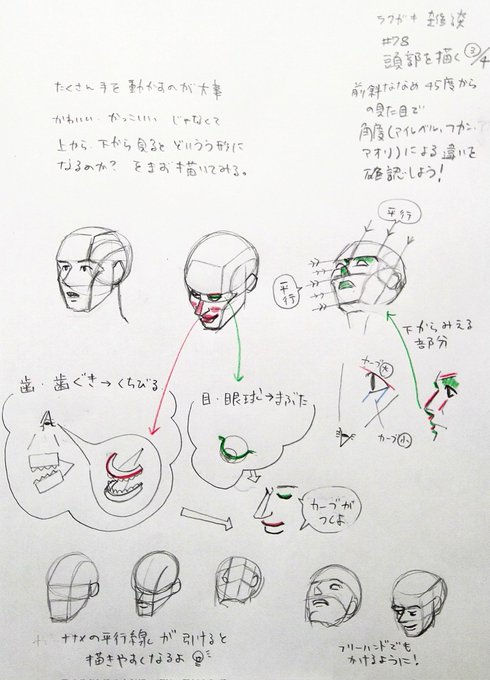 ラフガキ 雑談
#78
頭部を描く ③/4
前斜ななめ 45度から
の見た目で
角度(アイレベル、フカン、
アオリ)による違いを
確認しよう!
たくさん手を動かすのが大事
かわいい かっこいい じゃなくて
上から、下から見るとどいうう形に
なるのか? をまず描いてみる。
平行
平行
下からみえる
部分
歯・歯ぐき→くちびる
目・眼球→まぶた
カーブ大
カーブ小
カーブが
つくよ
ナナメの平行線が引けると
描きやすくなるよ
フリーハンドでも
かけるように!